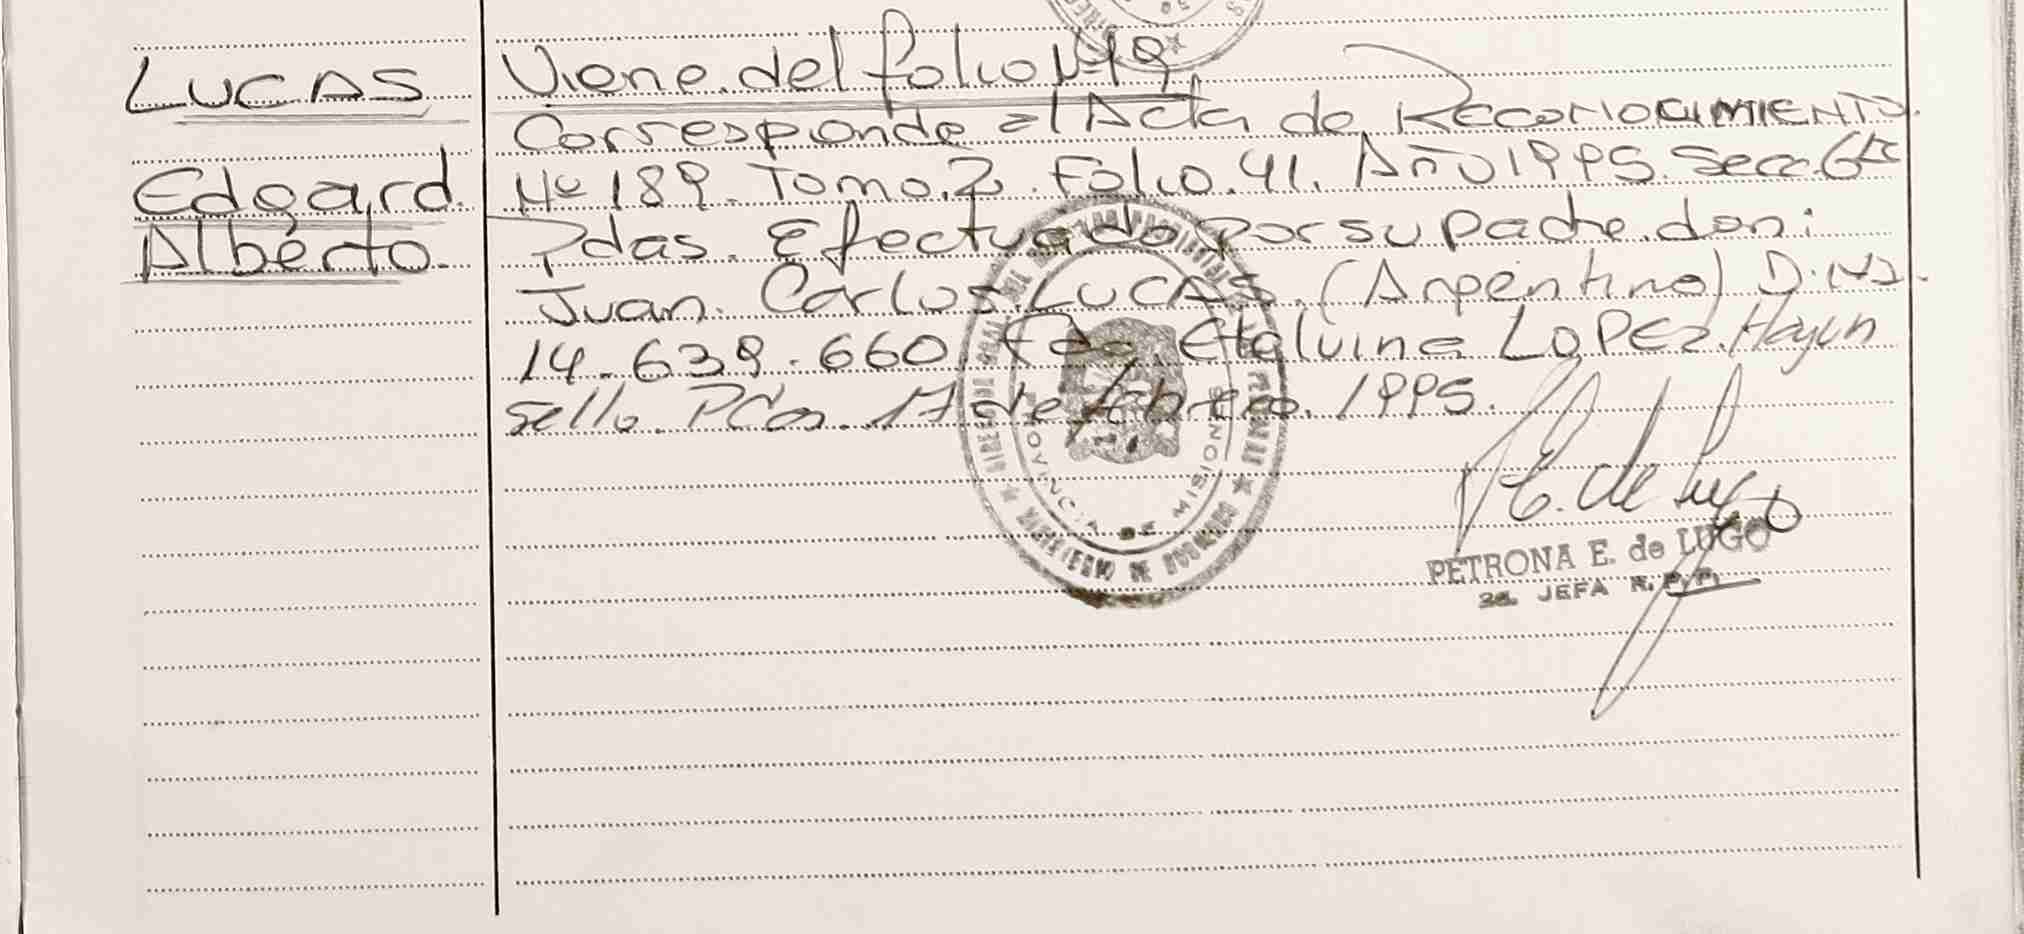 LUCAS
Edgard
Alberto.
Viene del folio Nº 19
Corresponde al Acta de RECONOCIMIENTO.
Nº 189. Tomo. 2. Folio. 41. Año 1995. Secc. 6ta
Pdas. Efectuado por su padre don:
Juan Carlos LUCAS. (Argentino) D.N.I.
14.639.660. Fdo. Etelvina LOPEZ. Hay un
sello. Pdas. 17 de febrero. 1995.
PROVINCIA DE MISIONES
PETRONA E. de LUGO
JEFA R.P.P.